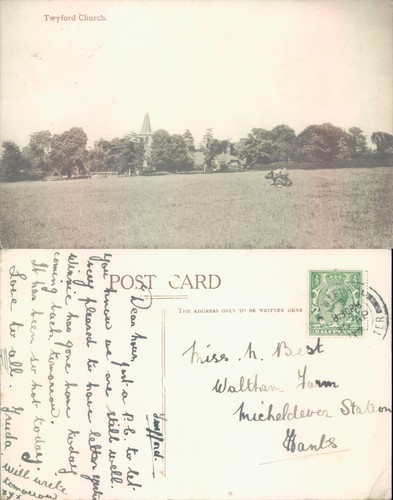 Twyford Church.
POST CARD
THE ADDRESS ONLY TO BE WRITTEN HERE
HALFPENNY
Miss. N. Best
Waltham Farm
Micheldever Station
Hants
Twyford.
Dear just a P.C to let
you know we are still well
very pleased to have letter
Winnie has gone home today
coming back tomorrow.
It has been so hot today.
Love to all.
will write
tomorrow
xxx